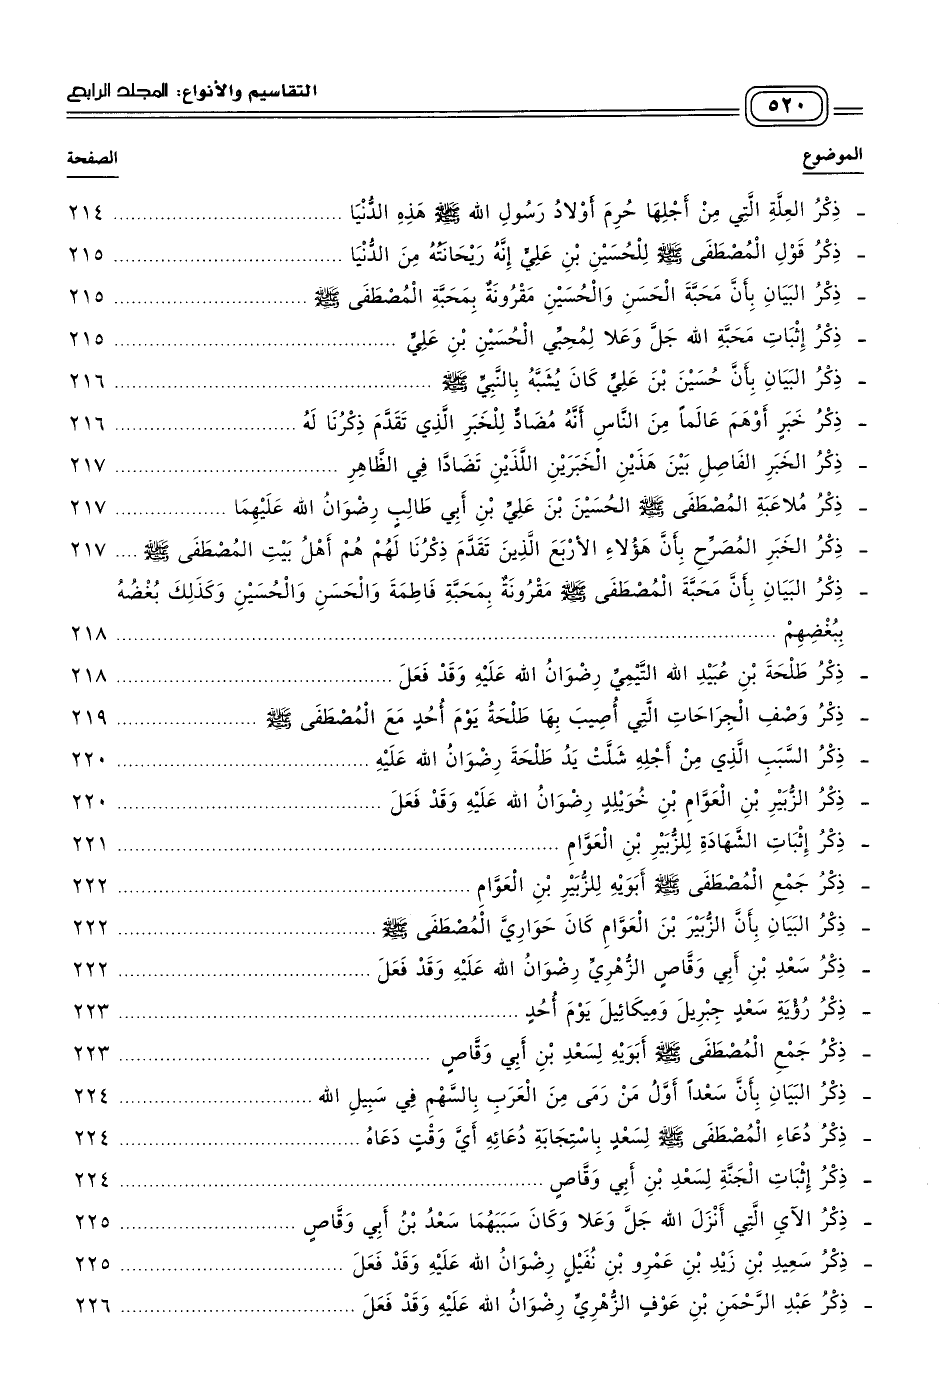 ٥٢٠ التقاسيم والأنواع: المجلد الرابع
الموضوع الصفحة
- ذِكْرُ العِلَّةِ الَّتِي مِنْ أَجْلِهَا حُرِمَ أَوْلادُ رَسُولِ الله ﷺ هَذِهِ الدُّنْيَا ........ ٢١٤
- ذِكْرُ قَوْلِ الْمُصْطَفَى ﷺ لِلْحُسَيْنِ بْنِ عَلِيٍّ إِنَّهُ رَيْحَانَتُهُ مِنَ الدُّنْيَا ........ ٢١٥
- ذِكْرُ البَيَانِ بِأَنَّ مَحَبَّةَ الْحَسَنِ وَالْحُسَيْنِ مَقْرُونَةٌ بِمَحَبَّةِ الْمُصْطَفَى ﷺ ........ ٢١٥
- ذِكْرُ إِثْبَاتِ مَحَبَّةِ الله جَلَّ وَعَلا لِمُحِبِّي الْحُسَيْنِ بْنِ عَلِيٍّ ........ ٢١٥
- ذِكْرُ البَيَانِ بِأَنَّ حُسَيْنَ بْنَ عَلِيٍّ كَانَ يُشَبَّهُ بِالنَّبِيِّ ﷺ ........ ٢١٦
- ذِكْرُ خَبَرٍ أَوْهَمَ عَالَماً مِنَ النَّاسِ أَنَّهُ مُضَادٌّ لِلْخَبَرِ الَّذِي تَقَدَّمَ ذِكْرُنَا لَهُ ........ ٢١٦
- ذِكْرُ الخَبَرِ الفَاصِلِ بَيْنَ هَذَيْنِ الْخَبَرَيْنِ اللَّذَيْنِ تَضَادَّا فِي الظَّاهِرِ ........ ٢١٧
- ذِكْرُ مُلاعَبَةِ المُصْطَفَى ﷺ الحُسَيْنَ بْنَ عَلِيِّ بْنِ أَبِي طَالِبٍ رِضْوَانُ الله عَلَيْهِمَا ........ ٢١٧
- ذِكْرُ الخَبَرِ المُصَرِّحِ بِأَنَّ هَؤُلاءِ الأرْبَعَ الَّذِينَ تَقَدَّمَ ذِكْرُنَا لَهُمْ هُمْ أَهْلُ بَيْتِ المُصْطَفَى ﷺ .... ٢١٧
- ذِكْرُ البَيَانِ بِأَنَّ مَحَبَّةَ الْمُصْطَفَى ﷺ مَقْرُونَةٌ بِمَحَبَّةِ فَاطِمَةَ وَالْحَسَنِ وَالْحُسَيْنِ وَكَذَلِكَ بُغْضُهُ
بِبُغْضِهِمْ ........ ٢١٨
- ذِكْرُ طَلْحَةَ بْنِ عُبَيْدِ الله التَّيْمِيِّ رِضْوَانُ الله عَلَيْهِ وَقَدْ فَعَلَ ........ ٢١٨
- ذِكْرُ وَصْفِ الْجِرَاحَاتِ الَّتِي أُصِيبَ بِهَا طَلْحَةُ يَوْمَ أُحُدٍ مَعَ الْمُصْطَفَى ﷺ ........ ٢١٩
- ذِكْرُ السَّبَبِ الَّذِي مِنْ أَجْلِهِ شَلَّتْ يَدُ طَلْحَةَ رِضْوَانُ الله عَلَيْهِ ........ ٢٢٠
- ذِكْرُ الزُّبَيْرِ بْنِ الْعَوَّامِ بْنِ خُوَيْلِدٍ رِضْوَانُ الله عَلَيْهِ وَقَدْ فَعَلَ ........ ٢٢٠
- ذِكْرُ إِثْبَاتِ الشَّهَادَةِ لِلزُّبَيْرِ بْنِ الْعَوَّامِ ........ ٢٢١
- ذِكْرُ جَمْعِ الْمُصْطَفَى ﷺ أَبَوَيْهِ لِلزُّبَيْرِ بْنِ الْعَوَّامِ ........ ٢٢٢
- ذِكْرُ البَيَانِ بِأَنَّ الزُّبَيْرَ بْنَ الْعَوَّامِ كَانَ حَوَارِيَّ الْمُصْطَفَى ﷺ ........ ٢٢٢
- ذِكْرُ سَعْدِ بْنِ أَبِي وَقَّاصٍ الزُّهْرِيِّ رِضْوَانُ الله عَلَيْهِ وَقَدْ فَعَلَ ........ ٢٢٢
- ذِكْرُ رُؤْيَةِ سَعْدٍ جِبْرِيلَ وَمِيكَائِيلَ يَوْمَ أُحُدٍ ........ ٢٢٣
- ذِكْرُ جَمْعِ الْمُصْطَفَى ﷺ أَبَوَيْهِ لِسَعْدِ بْنِ أَبِي وَقَّاصٍ ........ ٢٢٣
- ذِكْرُ البَيَانِ بِأَنَّ سَعْداً أَوَّلُ مَنْ رَمَى مِنَ الْعَرَبِ بِالسَّهْمِ فِي سَبِيلِ الله ........ ٢٢٤
- ذِكْرُ دُعَاءِ الْمُصْطَفَى ﷺ لِسَعْدٍ بِاسْتِجَابَةِ دُعَائِهِ أَيَّ وَقْتٍ دَعَاهُ ........ ٢٢٤
- ذِكْرُ إِثْبَاتِ الْجَنَّةِ لِسَعْدِ بْنِ أَبِي وَقَّاصٍ ........ ٢٢٤
- ذِكْرُ الآيِ الَّتِي أَنْزَلَ الله جَلَّ وَعَلا وَكَانَ سَبَبَهُمَا سَعْدُ بْنُ أَبِي وَقَّاصٍ ........ ٢٢٥
- ذِكْرُ سَعِيدِ بْنِ زَيْدِ بْنِ عَمْرِو بْنِ نُفَيْلٍ رِضْوَانُ الله عَلَيْهِ وَقَدْ فَعَلَ ........ ٢٢٥
- ذِكْرُ عَبْدِ الرَّحْمَنِ بْنِ عَوْفٍ الزُّهْرِيِّ رِضْوَانُ الله عَلَيْهِ وَقَدْ فَعَلَ ........ ٢٢٦